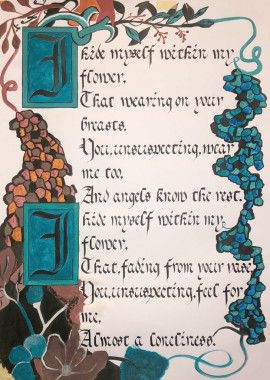 I
hide myself within my
flower,
That wearing on your
breasts,
You, unsuspecting, wear
me too,
And angels know the rest.
I
hide myself within my
flower,
That, fading from your vase,
You, unsuspecting, feel for
me,
Almost a loneliness.